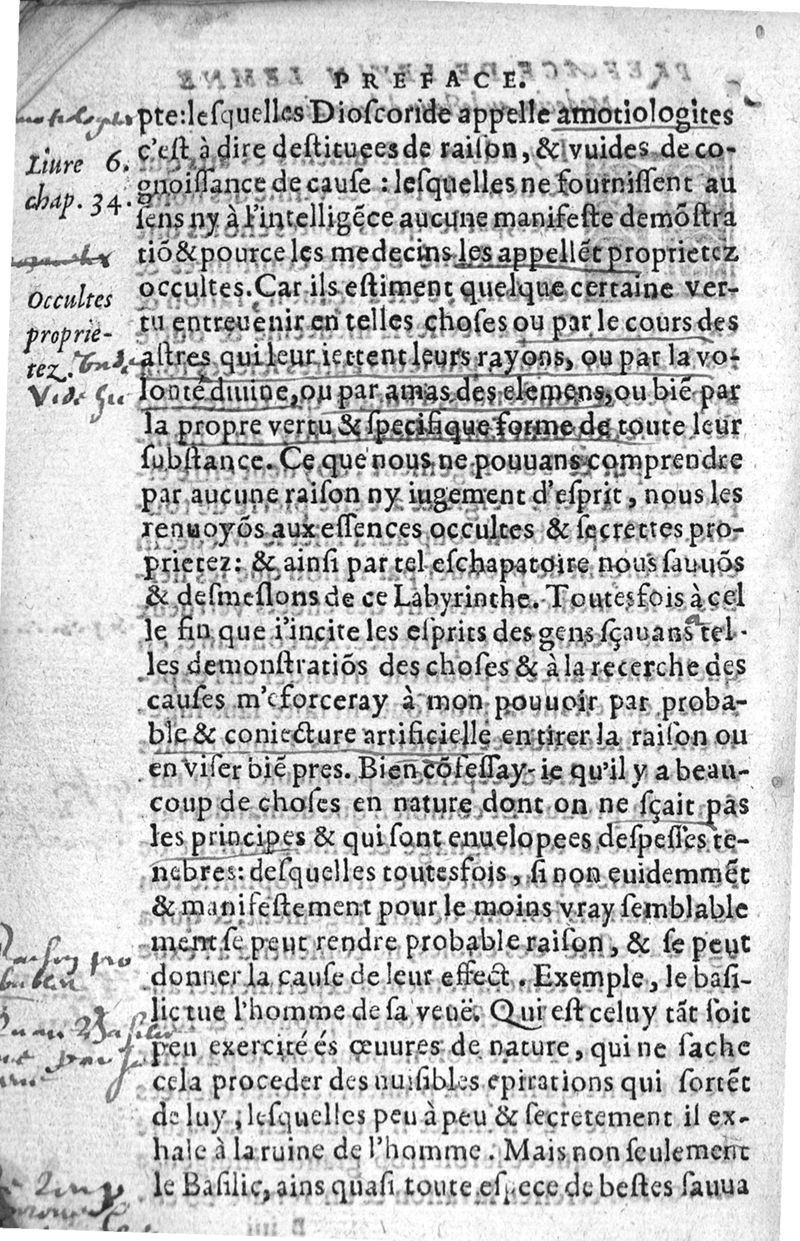 PREFACE.
pte: leſquelles Dioſcoride appelle amotiologites
c'eſt à dire deſtituees de raiſon, & vuides de co-
gnoiſſance de cauſe : leſquelles ne fourniſſent au
ſens ny à l'intelligẽce aucune manifeſte demõſtra
tiõ & pource les medecins les appellẽt proprietez
occultes. Car ils eſtiment quelque certaine ver-
tu entreuenir en telles choſes ou par le cours des
aſtres qui leur iettent leurs rayons, ou par la vo-
lonté diuine, ou par amas des elemens, ou biẽ par
la propre vertu & ſpecifique forme de toute leur
ſubſtance. Ce que nous ne pouuans comprendre
par aucune raiſon ny iugement d'eſprit, nous les
renuoyõs aux eſſences occultes & ſecrettes pro-
prietez: & ainſi par tel eſchapatoire nous ſauuõs
& deſmeſlons de ce Labyrinthe. Toutesfois à cel
le fin que i'incite les eſprits des gens ſçauans a tel-
les demonſtratiõs des choſes & à la recerche des
cauſes m'eforceray à mon pouuoir par proba-
ble & coniecture artificielle en tirer la raiſon ou
en viſer biẽ pres. Bien cõfeſſay-ie qu'il y a beau-
coup de choſes en nature dont on ne ſçait pas
les principes & qui ſont enuelopees deſpeſſes te-
nebres: deſquelles toutesfois, ſi non euidemmẽt
& manifeſtement pour le moins vray ſemblable
ment ſe peut rendre probable raiſon, & ſe peut
donner la cauſe de leur effect. Exemple, le baſi-
lic tue l'homme de ſa veuë. Qui eſt celuy tãt ſoit
peu exercité és œuures de nature, qui ne ſache
cela proceder des nuiſibles epirations qui ſortẽt
de luy, leſquelles peu à peu & ſecretement il ex-
hale à la ruine de l'homme. Mais non ſeulement
le Baſilic, ains quaſi toute eſpece de beſtes ſauua
Liure 6.
chap. 34.
Occultes
proprie-
tez.
Vide